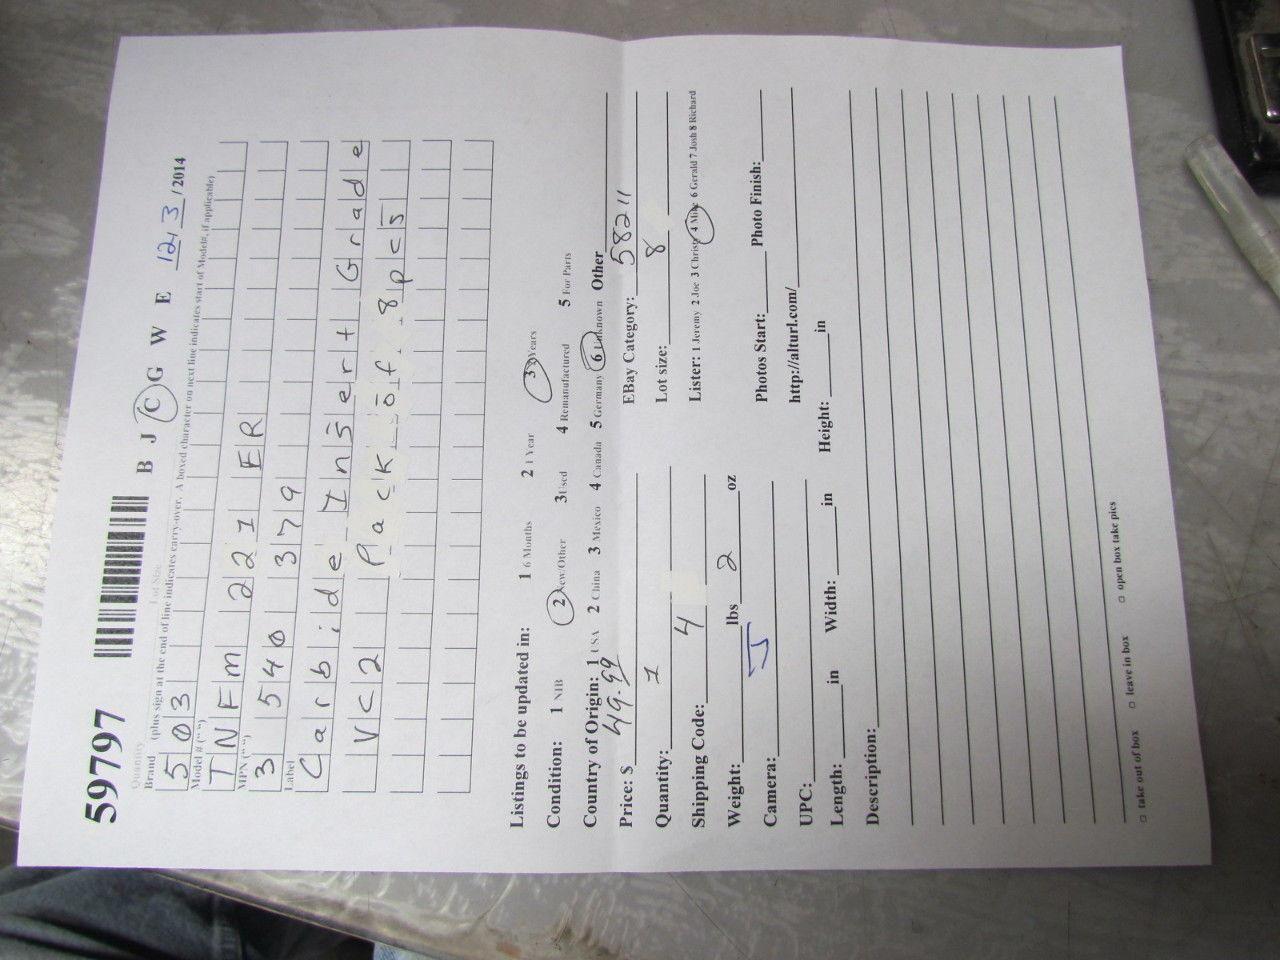 59797 B J C G W E 12/3/2014
Quantity Lot Size
Brand (plus sign at the end of line indicates carry-over. A boxed character on next line indicates start of Model#, if applicable)
503
Model # (" ")
TNFM 221 ER
MPN (" ")
3 540 379
Label
Carbide Insert Grade
VC2 Pack of 8 pcs
Listings to be updated in: 1 6 Months 2 1 Year 3 3 Years
Condition: 1 NIB 2 New/Other 3 Used 4 Remanufactured 5 For Parts
Country of Origin: 1 USA 2 China 3 Mexico 4 Canada 5 Germany 6 Unknown Other
Price: $ 49.99 EBay Category: 58211
Quantity: 1 Lot size: 8
Shipping Code: 4 Lister: 1 Jeremy 2 Joe 3 Christy 4 Mike 6 Gerald 7 Josh 8 Richard
Weight: lbs 2 oz
Camera: J Photos Start: Photo Finish:
UPC: http://alturl.com/
Length: in Width: in Height: in
Description:
□ take out of box □ leave in box □ open box take pics